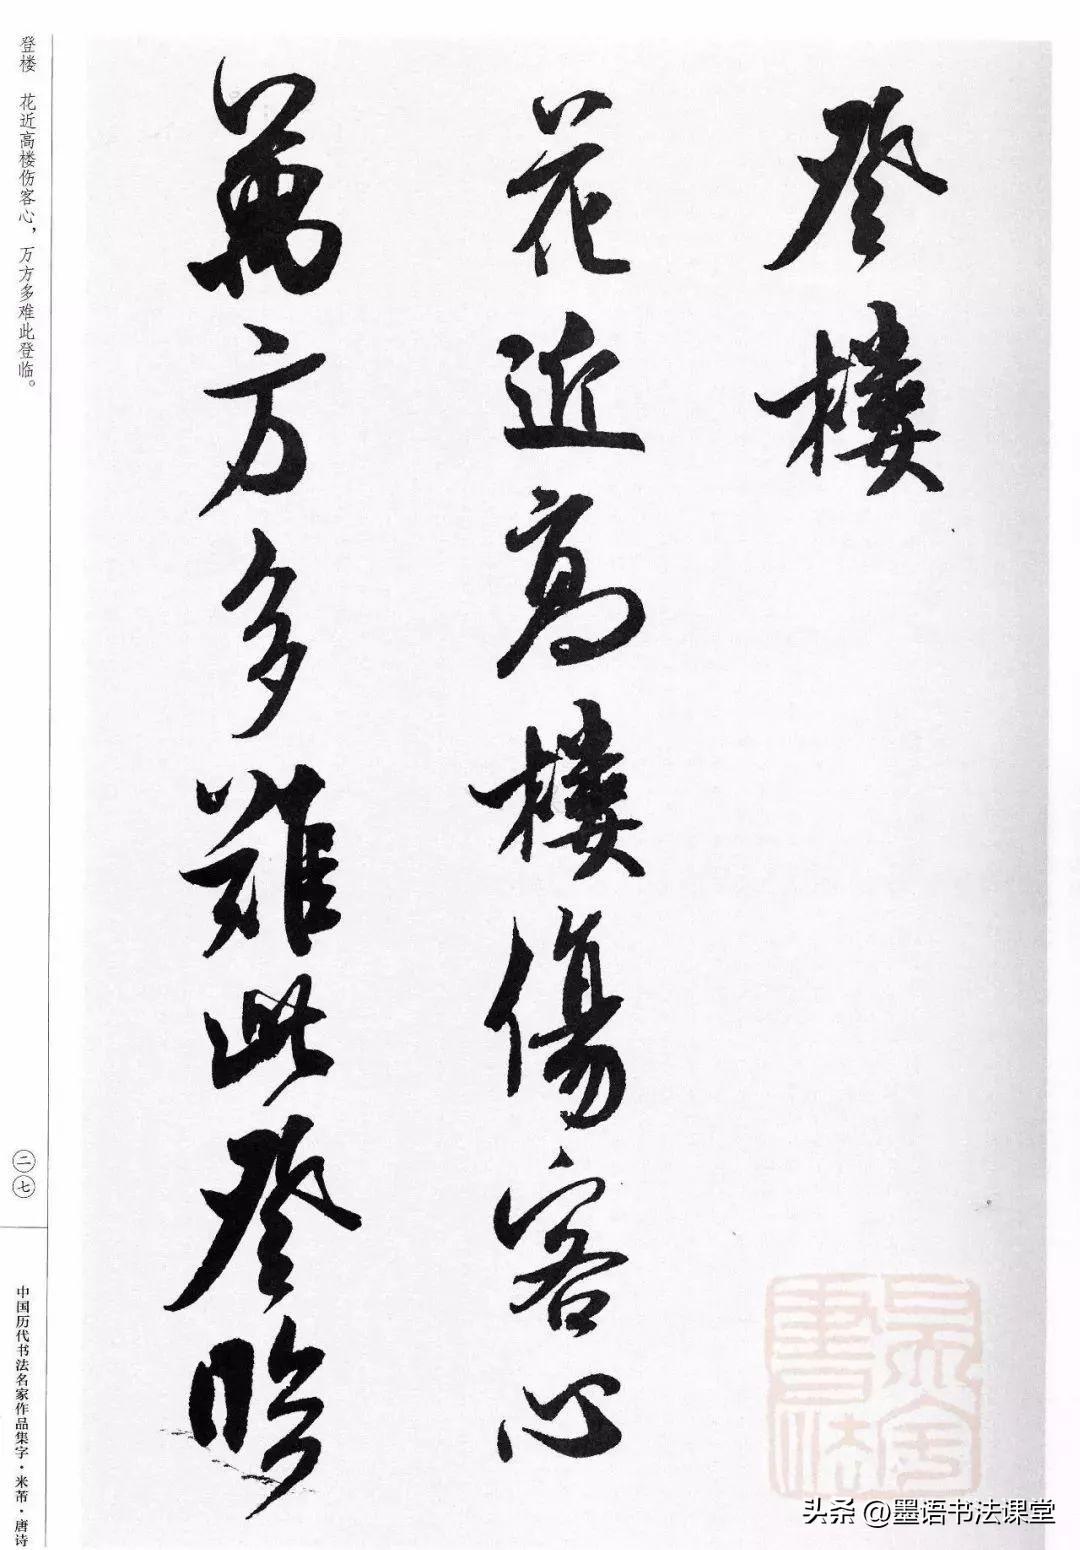 登樓
花近高樓傷客心
萬方多難此登臨
登楼　花近高楼伤客心，万方多难此登临。
二七
中国历代书法名家作品集字·米芾·唐诗
头条 @墨语书法课堂